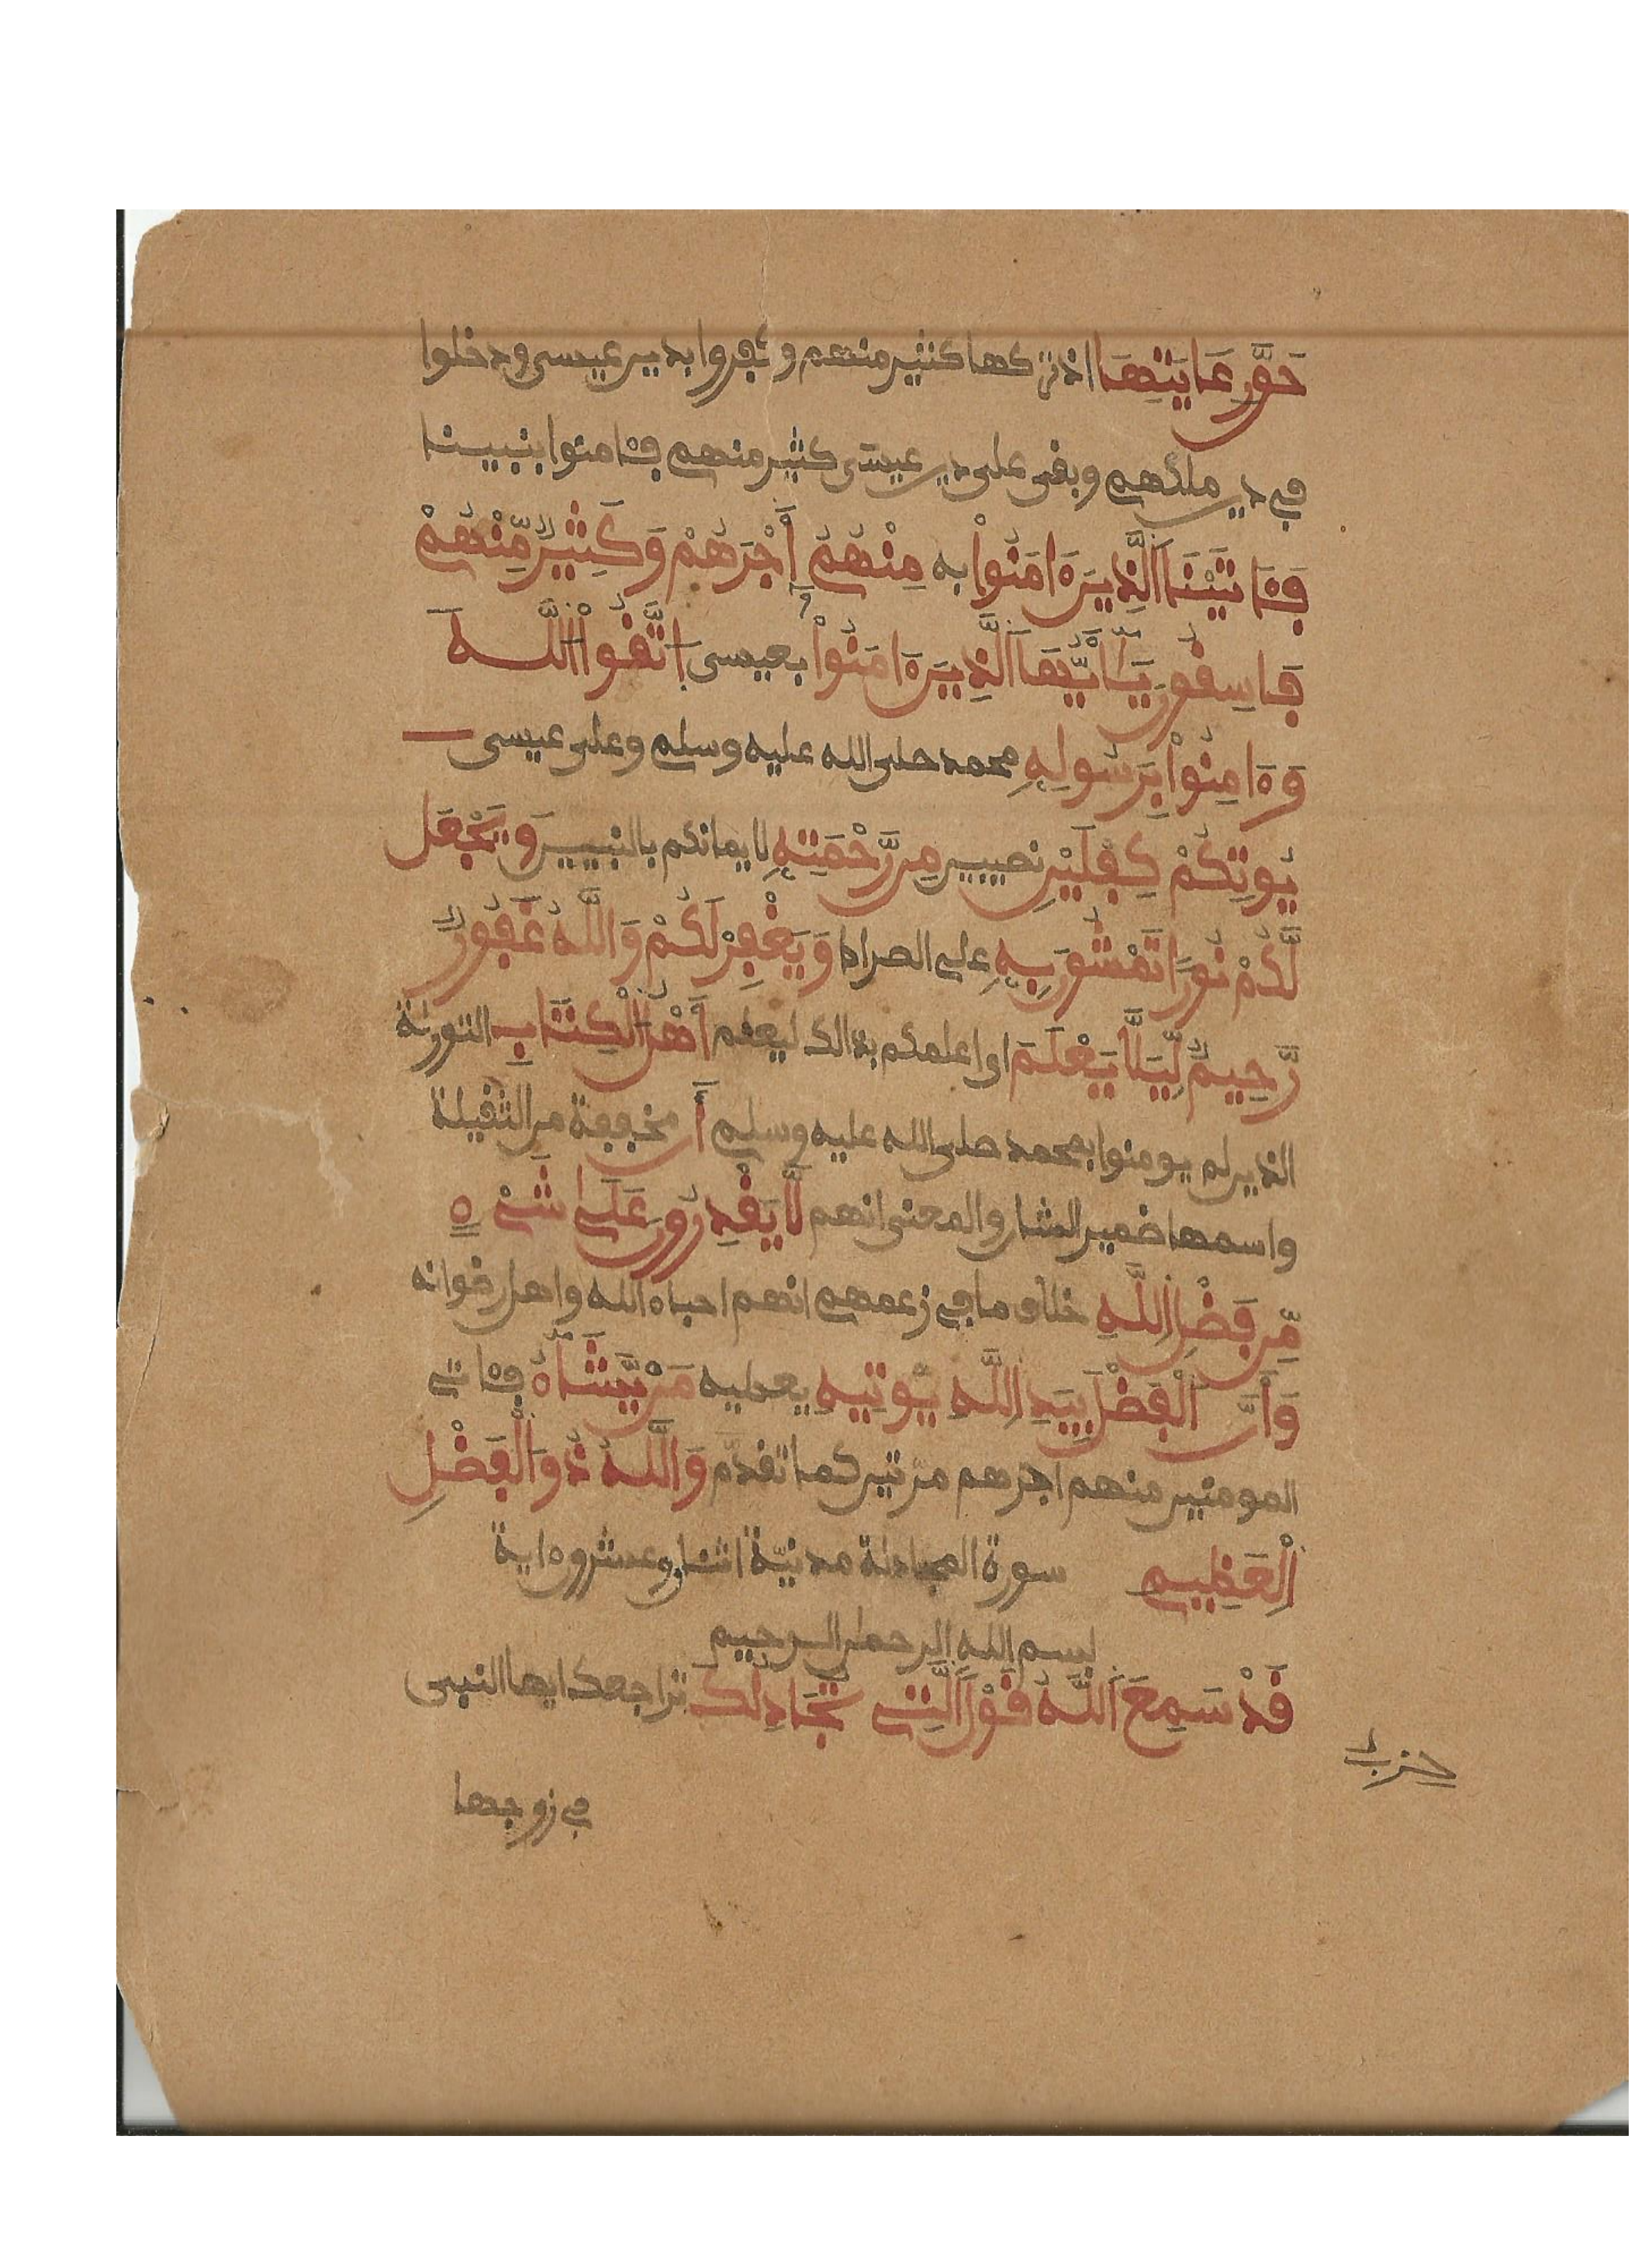 حَقَّ رِعَايَتِهَا اذ تركها كثير منهم وكفروا بدين عيسى ودخلوا
في دين ملكهم وبقى على دين عيسى كثير منهم فئامنوا بنبينا
فَئَاتَيْنَا اَلذِينَ ءَامَنُواْ به مِنْهُمُۥ أَجْرَهُمْ وَكَثِيرٌ مِّنْهُمْ
فَاسِقُونَ يَٰأَيُّهَا اَلذِينَ ءَامَنُواْ بعيسى اِتَّقُواْ اللَّهَ
وَءَامِنُواْ بِرَسُولِهِ محمد صلى الله عليه وسلم وعلى عيسى
يُوتِكُمْ كِفْلَيْنِ نصيبين مِن رَّحْمَتِهِ لايمانكم بالنبيين وَيَجْعَل
لَّكُمْ نُورًا تَمْشُونَ بِهِ على الصراط وَيَغْفِرْ لَكُمْ وَاللَّهُ غَفُورٌ
رَّحِيمٌ لِّيَلَّا يَعْلَمَ اى اعلمكم بذالك ليعلم أَهْلُ الْكِتَابِ التورية
الذين لم يومنوا بمحمد صلى الله عليه وسلم أَن مخففة من الثقيلة
واسمها ضمير الشان والمعنى انهم لَّا يَقْدِرُونَ عَلَىٰ شَےْءٍ
مِّن فَضْلِ اِللَّهِ خلاف ما في زعمهم انهم احباء الله واهل رضوانه
وَأَنَّ اَلْفَضْلَ بِيَدِ اِللَّهِ يُوتِيهِ يعطيه مَنْ يَّشَآءُ فئاتى
المومنين منهم اجرهم مرتين كما تقدم وَاللَّهُ ذُو الْفَضْلِ
اِلْعَظِيمِ سورة المجادلة مدنيّة اثنان وعشرون ءاية
بسم الله الرحمن الرحيم
قَدْ سَمِعَ اَللَّهُ قَوْلَ اَلَّتِے تُجَادِلُكَ تراجعك ايها النبى
حزب
في زوجها